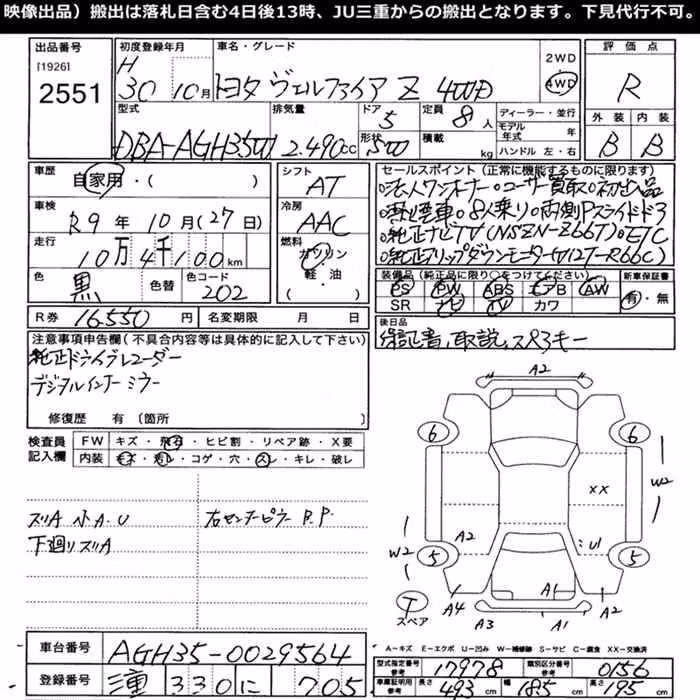 映像出品）搬出は落札日含む4日後13時、JU三重からの搬出となります。下見代行不可。
出品番号
[1926]
2551
初度登録年月
H
30 10月
車名・グレード
トヨタ ヴェルファイア Z 4WD
2WD
4WD
評価点
R
外装 内装
B B
型式
DBA-AGH35W
排気量
2.490cc
ドア
5
形状
5W
定員
8人
積載
kg
ディーラー・並行
モデル年式 年
ハンドル 左・右
車歴
自家用・( )
シフト
AT
車検
R9年 10月(27日)
冷房
AAC
走行
10万4千100km
燃料
ガソリン
軽・油
( )
色
黒
色替
色コード
202
R券
16.550円
名変期限 月 日
セールスポイント（正常に機能するものに限ります）
○法人ワンオーナー ○ユーザー買取 ○初出品
○8人乗り ○両側Pスライドドア
○純正ナビTV(NSZN-Z66T) ○ETC
○純正フリップダウンモニター(V12T-R66C)
装備品（純正品に限り○をつけてください）
PS PW ABS エアB AW
SR ナビ TV カワ
新車保証書
有・無
後日品
保証書、取説、スペアキー
注意事項申告欄（不具合内容等は具体的に記入して下さい）
純正ドライブレコーダー
デジタルインナーミラー
修復歴 有〔箇所 〕
検査員記入欄
FW キズ・飛石・ヒビ割・リペア跡・X要
内装 キズ・汚れ・コゲ・穴・スレ・キレ・破レ
ズリA 小A.U
下廻りズリA
右センターピラー P.P.
A2
6
6
W2
XX
A2
W2
U1
5
5
A4
A1
A2
T
スペア
A3
A1
A-キズ E-エクボ U-凹み W-補修跡 S-サビ C-腐食 XX-交換済
車台番号
AGH35-0029564
登録番号
三重 330 に 705
型式指定番号 参考
17978
類別区分番号 参考
0156
車庫証明用 参考
長さ 493cm
幅 185cm
高さ 195cm